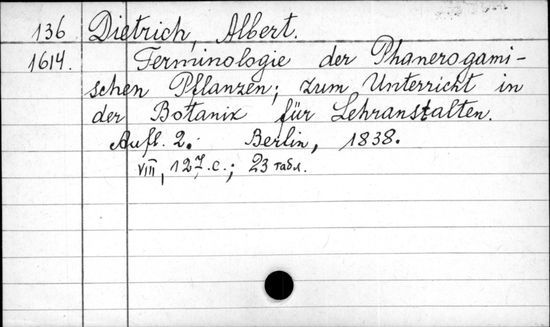 136 Dietrich, Albert.
1614. Terminologie der Phanerogami-
schen Pflanzen; zum Unterricht in
der Botanik für Lehranstalten.
Aufl. 2. Berlin, 1838.
VIII, 127 c.; 23 табл.